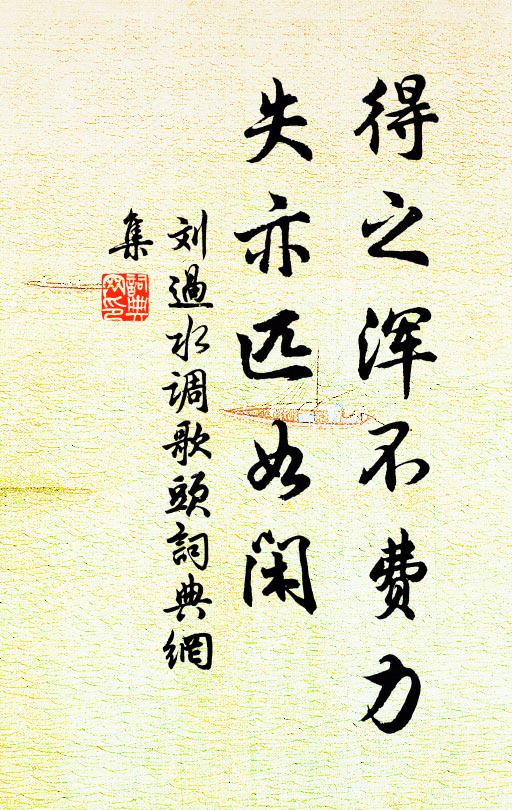 得之浑不费力
失亦匹如闲
刘過水调歌頭詞典網
集
詞典
网印